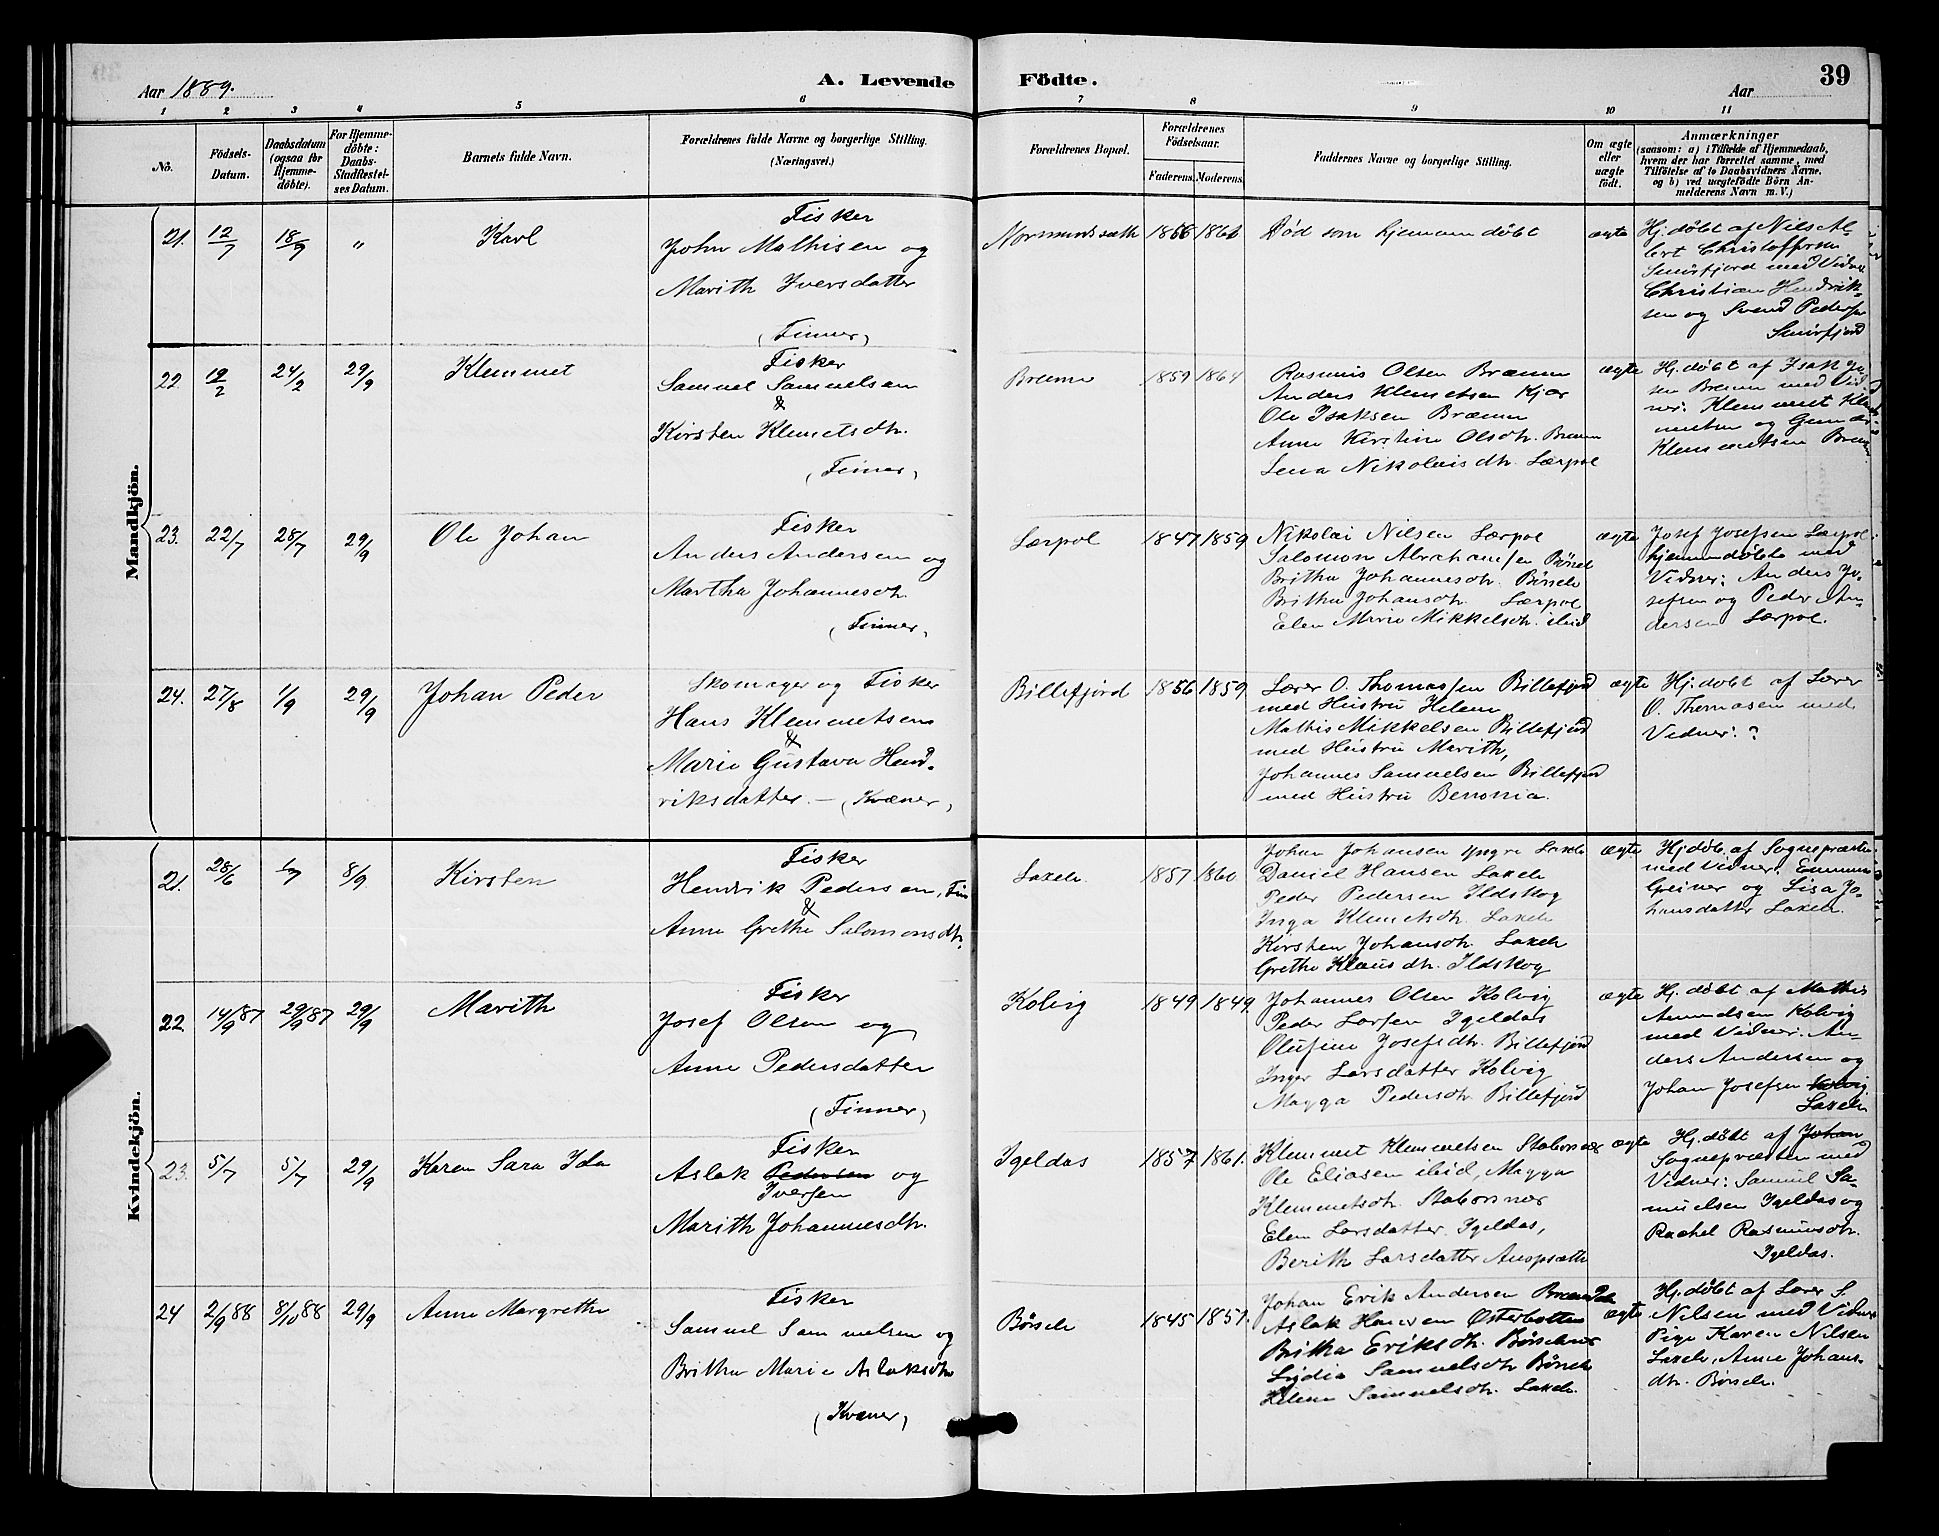 Aar 1889.
A. Levende
Födte.
39
Aar
1 2 3 4 5 6 7 8 9 10 11
No.
Födsels-
Datum.
Daabsdatum
(ogsaa for
Hjemme-
döbte).
For Hjemme-
döbte:
Daabs-
Stadfæstel-
ses Datum.
Barnets fulde Navn.
Forældrenes fulde Navne og borgerlige Stilling.
(Næringsvei.)
Forældrenes Bopæl.
Forældrenes
Födselsaar.
Faderens.
Moderens.
Faddernes Navne og borgerlige Stilling.
Om ægte
eller
uægte
födt.
Anmærkninger
(saasom: a) i Tilfælde af Hjemmedaab,
hvem der har forrettet samme, med
Tilföielse af to Daabsvidners Navne,
og b) ved uægtefödte Börn An-
melderens Navn m. V.)
Mandkjön.
21. 12/7 18/9 " Karl
Fisker
John Mathisen og
Marith Iversdatter
(Finner)
Normundsæth 1866 1861
Död som hjemmedöbt
ægte
Hj. döbt af Nils Al-
bert Christoffersen
Smörfjord med Vidner
Christian Hendrik-
sen og Svend Pedersen
Smörfjord
22 19/2 24/2 29/9 Klemmet
Fisker
Samuel Samuelsen
&
Kirsten Klemetsdtr.
(Finner)
Brænna 1859 1864
Rasmus Olsen Brænna
Anders Klemetsen Kjær
Ole Isaksen Brænna
Anne Kirstine Olsdtr. Brænna
Lena Nikolaisdtr. Lærpol
ægte
Hj. döbt af Isak
Brænna med Vid-
ner: Klemmet Klem-
metsen og Gunder
Klemmetsen Brænna
23. 22/7 28/7 29/9 Ole Johan
Fisker
Anders Andersen og
Martha Johannesdtr.
(Finner)
Lærpol 1847 1859
Nikolai Nilsen Lærpol
Salomon Abrahamsen Börsele
Britha Johannesdtr. Börsele
Britha Johansdtr. Lærpol
Elen Marie Mikkelsdtr. ibid
ægte
Josef Josefsen Lærpol
hjemmedöbte med
Vidner: Anders Jo-
sefsen og Peder An-
dersen Lærpol.
24. 27/8 1/9 29/9 Johan Peder
Skomager og Fisker
Hans Klemmetsen
&
Marie Gustava Hend-
riksdatter. – (Kvæner)
Billefjord 1856 1859
Lærer O. Thomassen Billefjord
med Hustru Helene
Mathis Mikkelsen Billefjord
med Hustru Marith,
Johannes Samuelsen Billefjord
med Hustru Benonia.
ægte
Hj. döbt af Lærer
O. Thomasen med
Vidner: ?
Kvindekjön.
21. 28/6 1/7 8/9 Kirsten
Fisker
Hendrik Pedersen, Fin
&
Anne Grethe Salomonsdtr.
Laxelv 1857 1860
Johan Johansen Yngre Laxelv
Daniel Hansen Laxelv
Peder Pedersen Ildskog
Inga Klemetsdtr. Laxelv
Kirsten Johansdtr. Laxelv
Grethe Klausdtr. Ildskog
ægte
Hj. döb. af Sognepræsten
med Vidner: Emma
Greiner og Lisa Jo-
hansdatter Laxelv.
22 14/9 87 29/9 87 29/9 Marith
Fisker
Josef Olsen og
Anne Pedersdatter
(Finner)
Kolvig 1849 1849
Johannes Olsen Kolvig
Peder Larsen Igeldas
Olufine Josefsdtr. Billefjord
Inger Larsdatter Kolvig
Magga Pedersdtr. Billefjord
ægte
Hj. döbt af Mathis
Amundsen Kolvig
med Vidner: An-
ders Andersen og
Johan Josefsen Kolvig
Laxelv
23. 5/7 5/7 29/9 Karen Sara Ida
Fisker
Aslak Pedersen og
Iversen
Marith Johannesdtr.
Igeldas 1857 1861.
Klemmet Klemmetsen Stabursnæs
Ole Eliasen ibid, Magga
Klemmetsdtr. Stabursnæs
Elen Larsdatter Igeldas,
Berith Larsdatter
ægte
Hj. döbt af Johan
Sognepræsten med
Vidner: Samuel Sa-
muelsen Igeldas og
Rachel Rasmusdtr.
Igeldas.
24 2/9 88 8/10 88 29/9 Anne Margrethe
Fisker
Samuel Samuelsen og
Britha Marie Aslaksdtr
(Kvæner)
Börselv 1845 1851.
Johan Erik Andersen Brænna
Aslak Hansen Österbotten
Britha Eriksdtr. Börselvnæs
Lydia Samuelsdtr Börselv
Helene Samuelsdtr. Laxelv
ægte
Hj. döbt af Lærer S.
Nilsen med Vidner
Pige Karen Nilsen
Laxelv, Anne Johans-
dtr. Börselv.